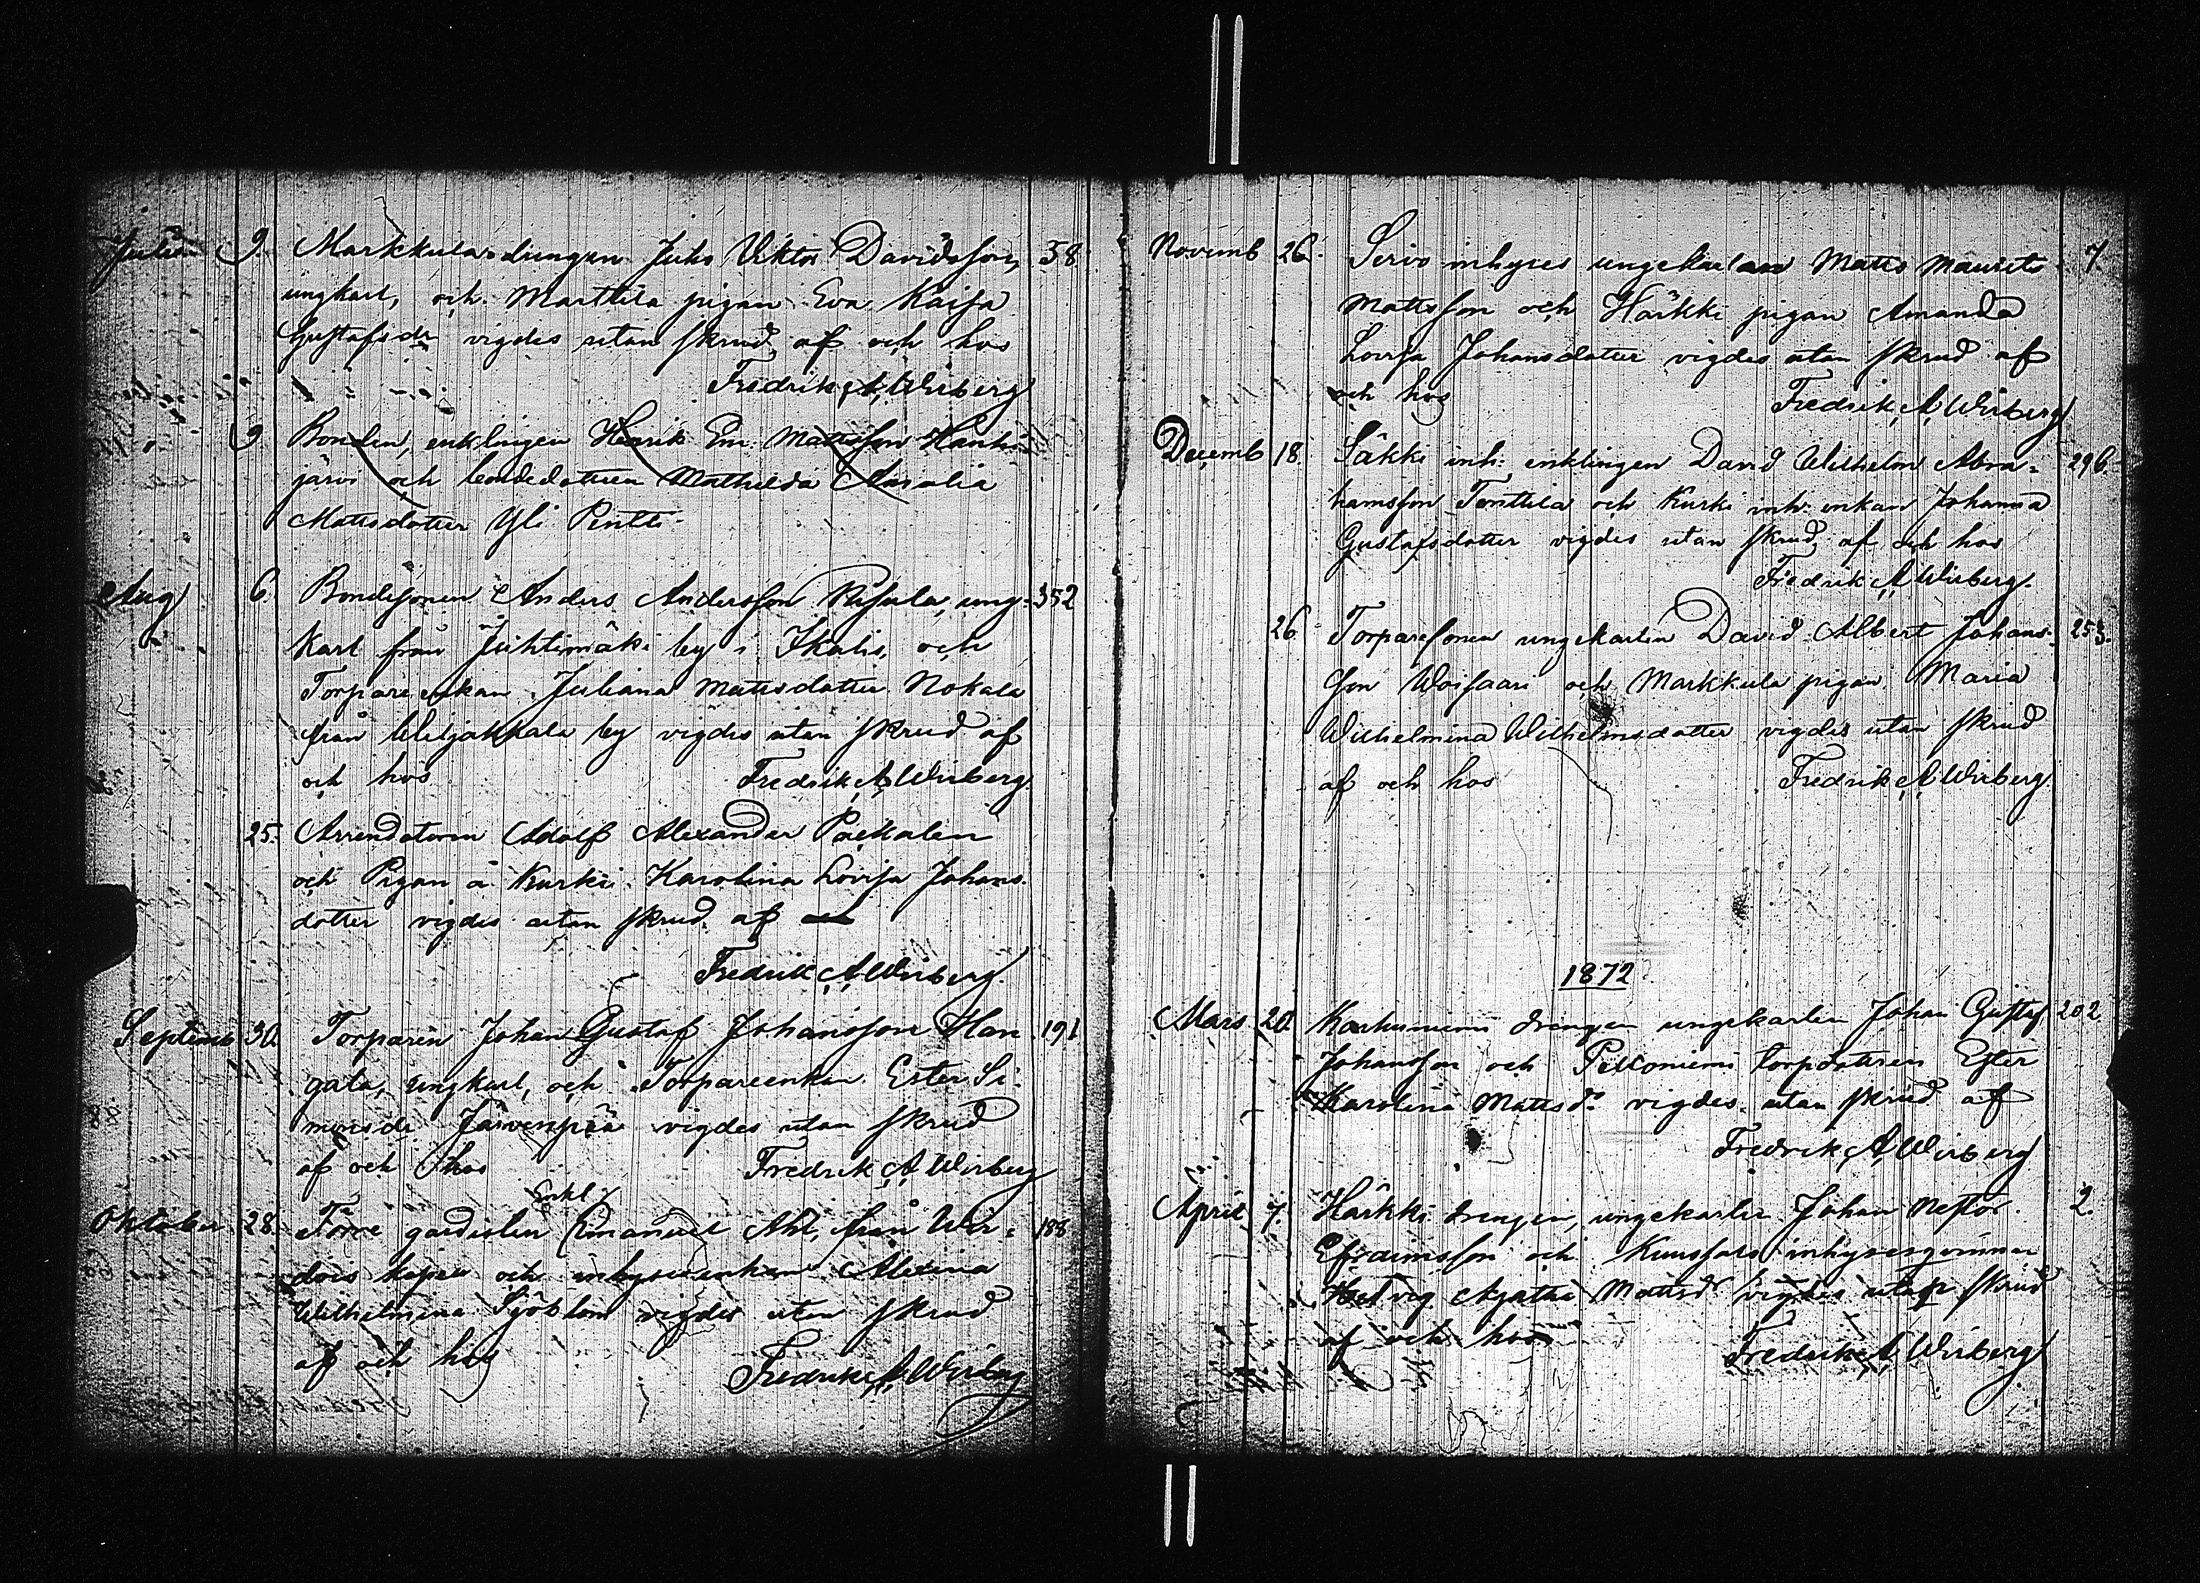 Julii 9. Markkula drängen Juho Viktor Davidsson, 58
ungkarl, och Marttila pigan Eva Kaisa
Gustafsdr vigdes utan skrud af och hos
Fredrik A. Wirberg
" 9 Bonden, enklingen Henrik Em. Mattsson Hanhi-
järvi och bondedottren Mathilda Rosalia
Mattsdotter Yli Pentti
Aug 6. Bondesonen Anders Andersson Risula, ung- 352
karl från Juhtimäki by i Ikalis, och
Torpare enkan Juliana Mattsdotter Nokala
från Wiljakkala by vigdes utan skrud af
och hos Fredrik A. Wirberg.
25. Arrendatorn Adolf Alexander Packalen
och Pigan å Kurki Karolina Lovisa Johans-
dotter vigdes utan skrud af
Fredrik A. Wirberg
Septemb 30. Torparen Johan Gustaf Johansson Han 191
gala, ungkarl, och Torpareenkan Ester Si-
monsdr Järvenpää vigdes utan skrud
af och hos Fredrik A. Wirberg
Enkl.
Oktober 28. Förre gardisten Emanuel Ahl, från Wir- 188
dois kapell och inhyseenkan Alexina
Wilhelmina Sjöblom vigdes utan skrud
af och hos Fredrik A. Wirberg
Novemb 26. Sirvo inhyses ungekarlen Matts Maurits 7.
Mattsson och Härkki pigan Amanda
Lovisa Johansdotter vigdes utan skrud af
och hos Fredrik A. Wirberg
Decemb 18. Säkki inh. enklingen David Wilhelm Abra- 296.
hamsson Tonttila och Kurki inh. enkan Johanna
Gustafsdotter vigdes utan skrud af och hos
Fredrik A. Wirberg.
26. Torparesonen ungekarlen David Albert Johans- 253.
son Woisaari och Markkula pigan Maria
Wilhelmina Wilhelmsdotter vigdes utan skrud
af och hos Fredrik A. Wirberg
1872
Mars 20. drengen ungekarlen Johan Gustaf 202
Johansson och torpdottren Ester
Karolina Mattsdr vigdes utan skrud af
Fredrik A. Wirberg
April 7. Härkki drengen, ungekarlen Johan Nestor 2.
Efraimsson och inhysesqvinnan
Hedvig Agatha Mattsdr vigdes utan skrud
af och hos Fredrik A. Wirberg